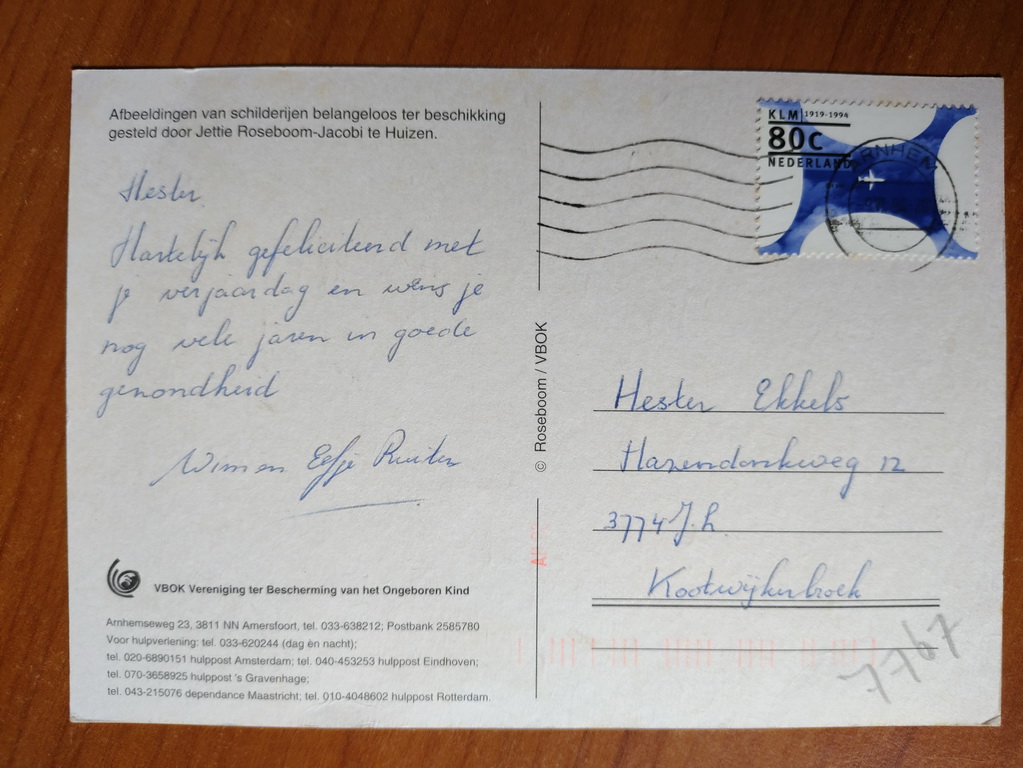 Afbeeldingen van schilderijen belangeloos ter beschikking
gesteld door Jettie Roseboom-Jacobi te Huizen.
Hester
Hartelijk gefeliciteerd met
je verjaardag en wens je
nog vele jaren in goede
gezondheid
Wim en Eefje Ruiter
VBOK Vereniging ter Bescherming van het Ongeboren Kind
Arnhemseweg 23, 3811 NN Amersfoort, tel. 033-638212; Postbank 2585780
Voor hulpverlening: tel. 033-620244 (dag èn nacht);
tel. 020-6890151 hulppost Amsterdam; tel. 040-453253 hulppost Eindhoven;
tel. 070-3658925 hulppost 's Gravenhage;
tel. 043-215076 dependance Maastricht; tel. 010-4048602 hulppost Rotterdam.
© Roseboom / VBOK
KLM 1919-1994
80c
NEDERLAND
ARNHEM
Hester Ekkels
Hazendonkweg 12
3774 JL
Kootwijkerbroek
7767